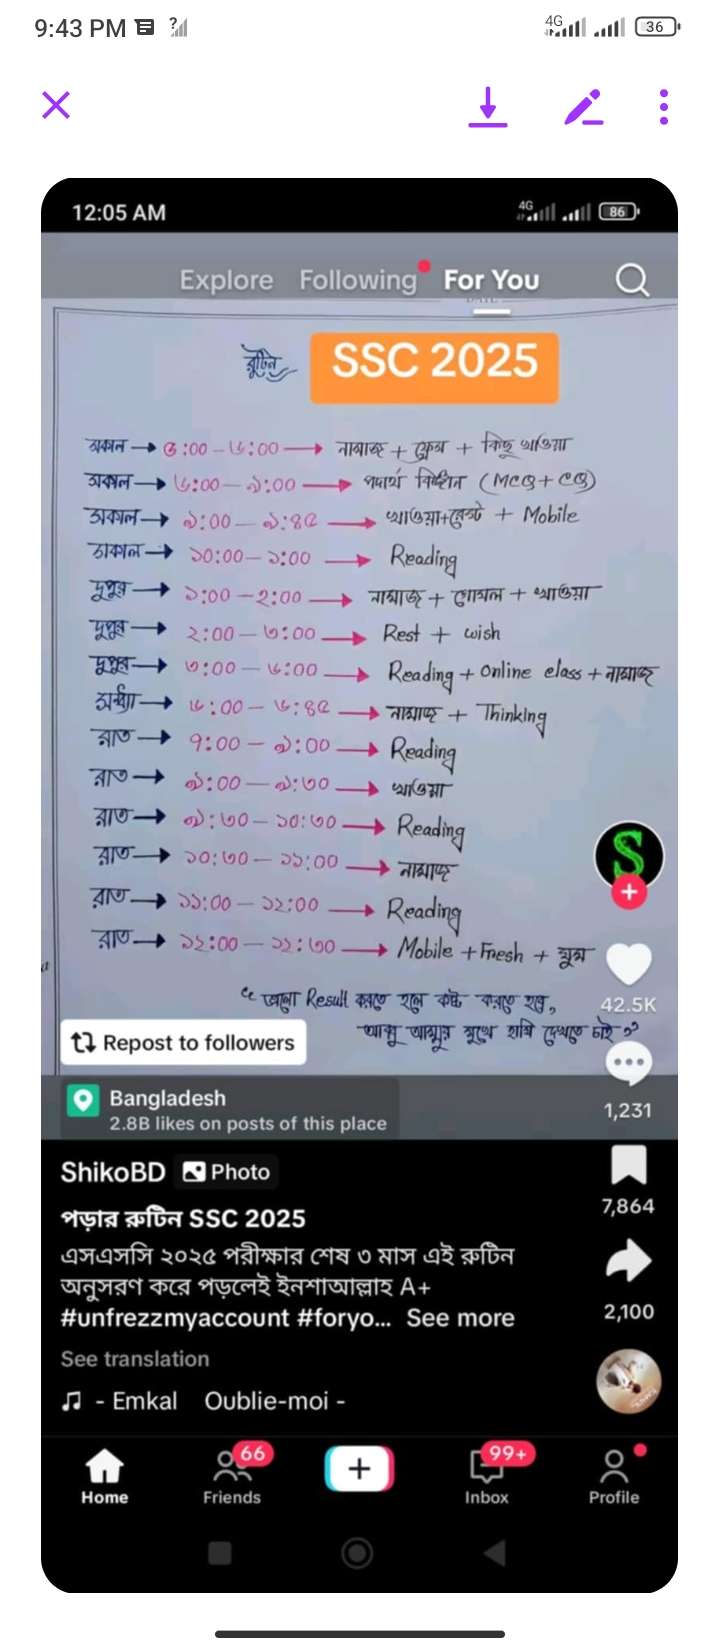 9:43 PM
4G 36
12:05 AM
4G 86
Explore Following For You
রুটিন SSC 2025
সকাল → ৫:00 – ৬:00 → নামাজ + ফ্রেশ + কিছু খাওয়া
সকাল → ৬:00 – ৯:00 → পদার্থ বিজ্ঞান (MCQ + CQ)
সকাল → ৯:00 – ৯:8৫ → খাওয়া+রেস্ট + Mobile
সকাল → ১0:00 – ১:00 → Reading
দুপুর → ১:00 – ২:00 → নামাজ + গোসল + খাওয়া
দুপুর → ২:00 – ৩:00 → Rest + wish
দুপুর → ৩:00 – ৬:00 → Reading + Online class + নামাজ
সন্ধ্যা → ৬:00 – ৬:8৫ → নামাজ + Thinking
রাত → 9:00 – ৯:00 → Reading
রাত → ৯:00 – ৯:৩0 → খাওয়া
রাত → ৯:৩0 – ১0:৩0 → Reading
রাত → ১0:৩0 – ১১:00 → নামাজ
রাত → ১১:00 – ১২:00 → Reading
রাত → ১২:00 – ১২:৩0 → Mobile + Fresh + ঘুম
“ ভালো Result করতে হলে কষ্ট করতে হবে,
আব্বু আম্মুর মুখে হাসি দেখতে চাই ”
42.5K
Repost to followers
1,231
Bangladesh
2.8B likes on posts of this place
ShikoBD Photo
7,864
পড়ার রুটিন SSC 2025
এসএসসি ২০২৫ পরীক্ষার শেষ ৩ মাস এই রুটিন
অনুসরণ করে পড়লেই ইনশাআল্লাহ A+
#unfrezzmyaccount #foryo... See more
2,100
See translation
- Emkal Oublie-moi -
66 99+
Home Friends Inbox Profile